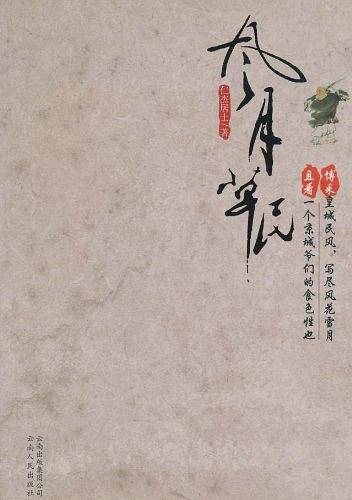 风月草民
仁杰居士/著
博采皇城民风，写尽风花雪月
且看一个京城爷们的食色性也
云南出版集团公司
云南人民出版社